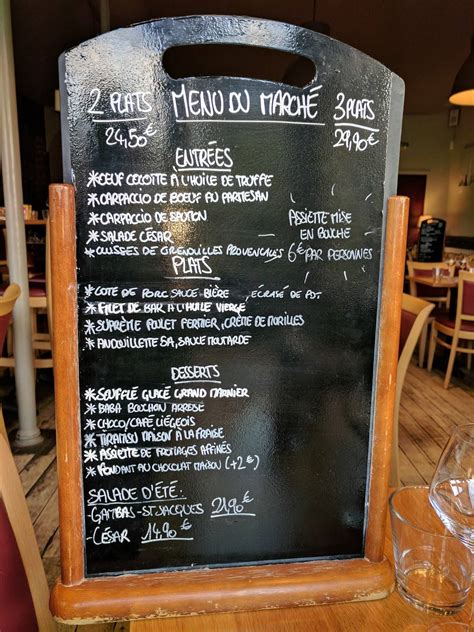 2 PLATS MENU DU MARCHÉ 3 PLATS
24,50€ 29,90€
ENTRÉES
*OEUF COCOTTE À L'HUILE DE TRUFFE
*CARPACCIO DE BOEUF AU PARMESAN
*CARPACCIO DE SAUMON
*SALADE CÉSAR
*CUISSES DE GRENOUILLES PROVENÇALES
ASSIETTE MISE
EN BOUCHE
6€ PAR PERSONNES
PLATS
*COTE DE PORC SAUCE BIÈRE, ÉCRASÉ DE PDT
*FILET DE BAR À L'HUILE VIERGE
*SUPRÊME POULET FERMIER, CRÈME DE MORILLES
*ANDOUILLETTE 5A, SAUCE MOUTARDE
DESSERTS
*SOUFFLÉ GLACÉ GRAND MARNIER
*BABA BOUCHON ARROSÉ
*CHOCO/CAFÉ LIÉGEOIS
*TIRAMISU MAISON À LA FRAISE
*ASSIETTE DE FROMAGES AFFINÉS
*FONDANT AU CHOCOLAT MAISON (+2€)
SALADE D'ÉTÉ:
-GAMBAS-ST JACQUES 21,90€
-CÉSAR 14,90€